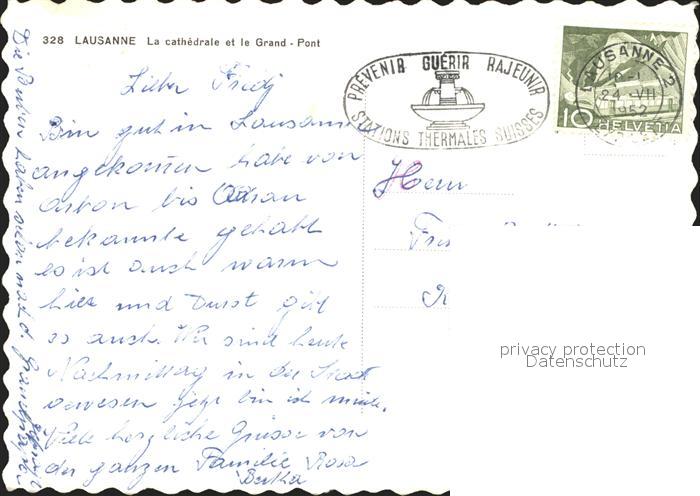 328 LAUSANNE La cathédrale et le Grand - Pont
PRÉVENIR GUÉRIR RAJEUNIR
STATIONS THERMALES SUISSES
LAUSANNE 2
24. VII
1952
10 HELVETIA
Lieber Fredj
Bin gut in Lausanne
angekommen habe von
Arbon bis
bekannte gehabt
es ist auch warm
hier und Durst gibt
es auch. Wir sind heute
Nachmittag in der Stadt
gewesen jetzt bin ich müde.
Viele herzliche Grüsse von
der ganzen Familie Rosa
Bertha
Die Buben haben
Herrn
privacy protection
Datenschutz